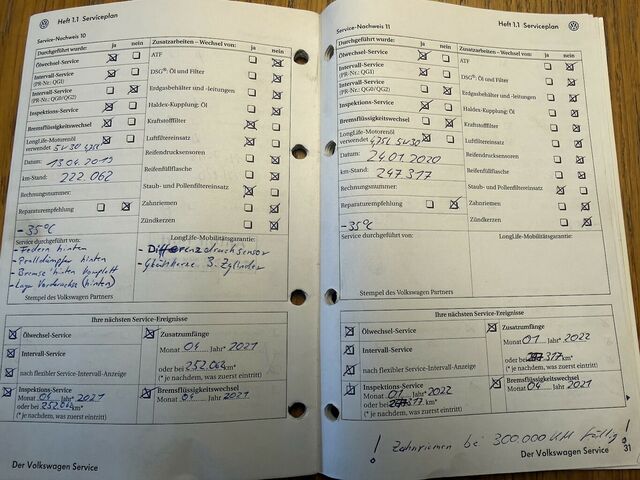 Heft 1.1 Serviceplan
Service-Nachweis 10
Durchgeführt wurde: ja nein
Ölwechsel-Service
Intervall-Service
(PR-Nr.: QG1)
Intervall-Service
(PR-Nr.: QG0/QG2)
Inspektions-Service
Bremsflüssigkeitswechsel
LongLife-Motorenöl
verwendet 5W30 4,75L
Datum: 13.04.2019
km-Stand: 222.062
Rechnungsnummer:
Reparaturempfehlung
-35°C
Zusatzarbeiten – Wechsel von: ja nein
ATF
DSG®: Öl und Filter
Erdgasbehälter und -leitungen
Haldex-Kupplung: Öl
Kraftstofffilter
Luftfiltereinsatz
Reifendruksensoren
Reifenfüllflasche
Staub- und Pollenfiltereinsatz
Zahnriemen
Zündkerzen
Service durchgeführt von:
- Federn hinten
- Pralldämpfer hinten
- Bremse hinten komplett
- Lager Vorderachse (hinten)
LongLife-Mobilitätsgarantie:
- Differenzdrucksensor
- Glühkerze 3. Zylinder
Stempel des Volkswagen Partners
Ihre nächsten Service-Ereignisse
Ölwechsel-Service
Intervall-Service
nach flexibler Service-Intervall-Anzeige
Inspektions-Service
Monat 04 Jahr* 2021
oder bei 252.062 km*
(* je nachdem, was zuerst eintritt)
Zusatzumfänge
Monat 04 Jahr* 2021
oder bei 252.062 km*
(* je nachdem, was zuerst eintritt)
Bremsflüssigkeitswechsel
Monat 04 Jahr 2021
Der Volkswagen Service
Heft 1.1 Serviceplan
Service-Nachweis 11
Durchgeführt wurde: ja nein
Ölwechsel-Service
Intervall-Service
(PR-Nr.: QG1)
Intervall-Service
(PR-Nr.: QG0/QG2)
Inspektions-Service
Bremsflüssigkeitswechsel
LongLife-Motorenöl
verwendet 4,75L 5W30
Datum: 24.01.2020
km-Stand: 247.317
Rechnungsnummer:
Reparaturempfehlung
-35°C
Zusatzarbeiten – Wechsel von: ja nein
ATF
DSG®: Öl und Filter
Erdgasbehälter und -leitungen
Haldex-Kupplung: Öl
Kraftstofffilter
Luftfiltereinsatz
Reifendrucksensoren
Reifenfüllflasche
Staub- und Pollenfiltereinsatz
Zahnriemen
Zündkerzen
Service durchgeführt von:
LongLife-Mobilitätsgarantie:
Stempel des Volkswagen Partners
Ihre nächsten Service-Ereignisse
Ölwechsel-Service
Intervall-Service
nach flexibler Service-Intervall-Anzeige
Inspektions-Service
Monat 01 Jahr* 2022
oder bei 317 km*
(* je nachdem, was zuerst eintritt)
Zusatzumfänge
Monat 01 Jahr* 2022
oder bei 317 km*
(* je nachdem, was zuerst eintritt)
Bremsflüssigkeitswechsel
Monat 04 Jahr 2021
! Zahnriemen bei 300.000 KM fällig !
Der Volkswagen Service 31